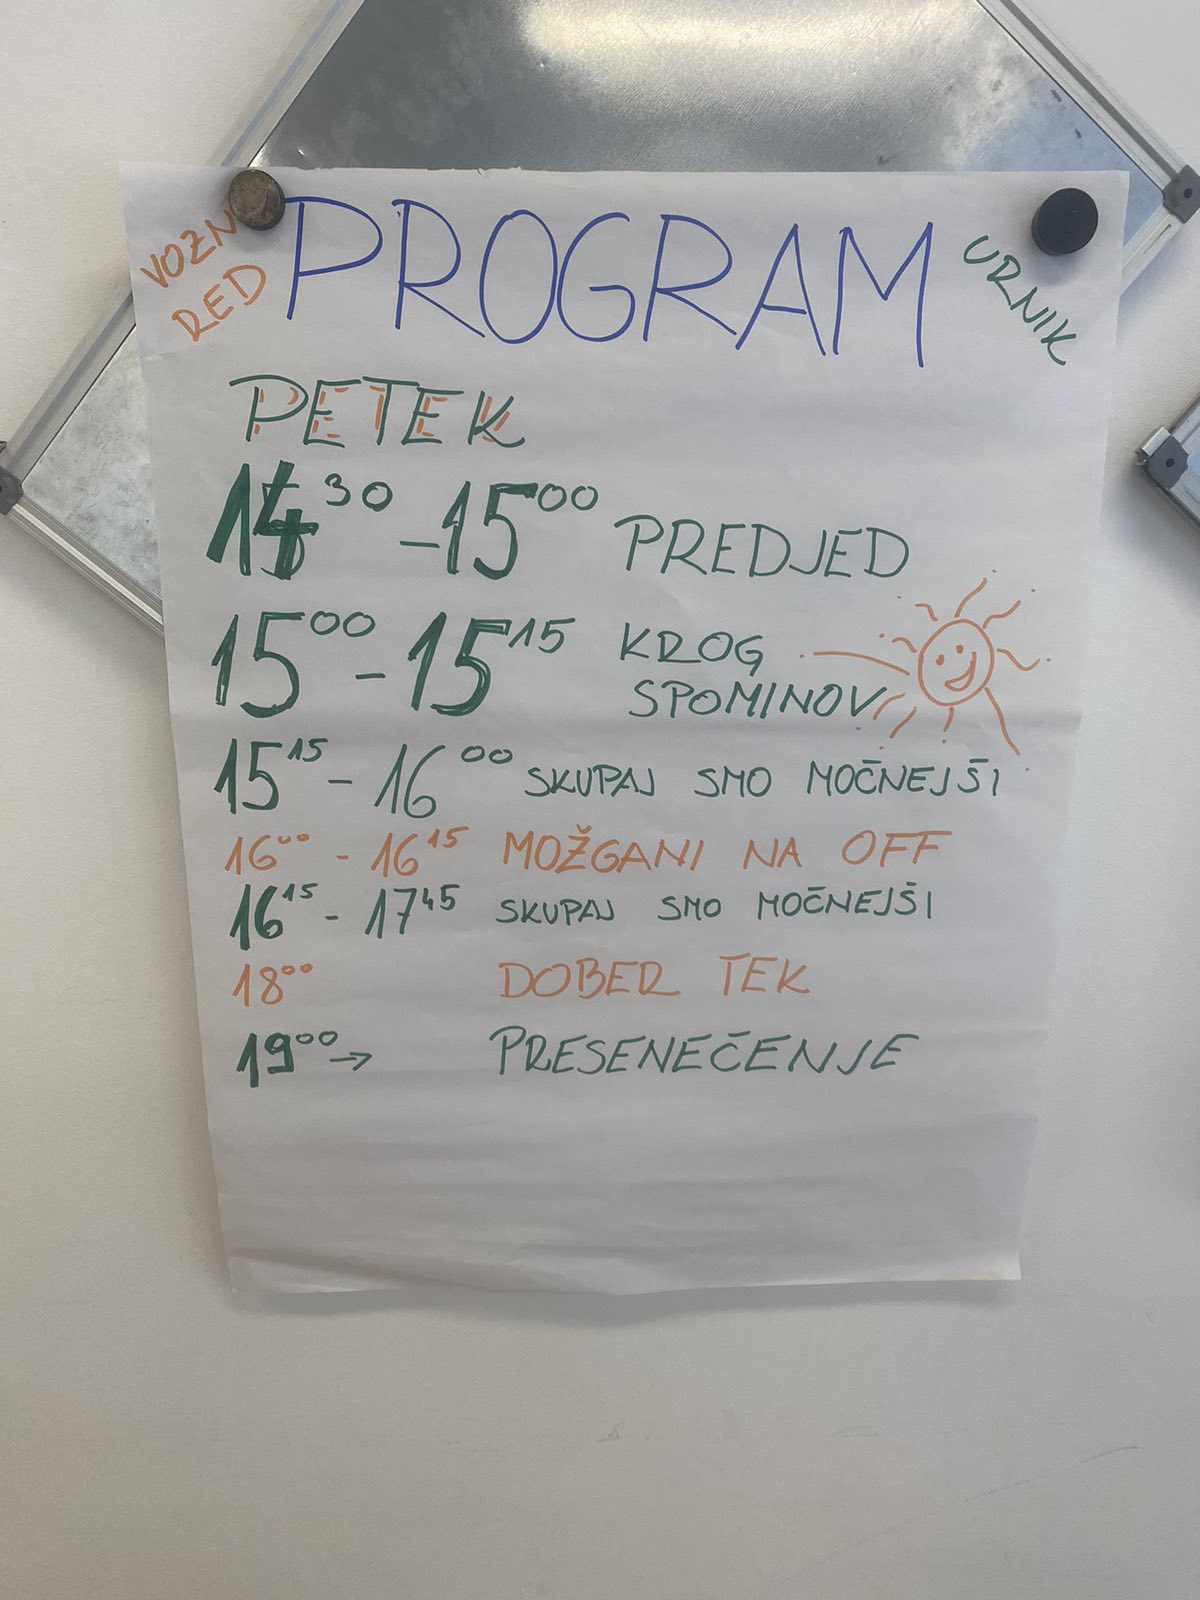 VOZN
RED
PROGRAM
URNIK
PETEK
14 30 - 15 00 PREDJED
15 00 - 15 15 KROG
SPOMINOV
15 15 - 16 00 SKUPAJ SMO MOČNEJŠI
16 00 - 16 15 MOŽGANI NA OFF
16 15 - 17 45 SKUPAJ SMO MOČNEJŠI
18 00 DOBER TEK
19 00 → PRESENEČENJE